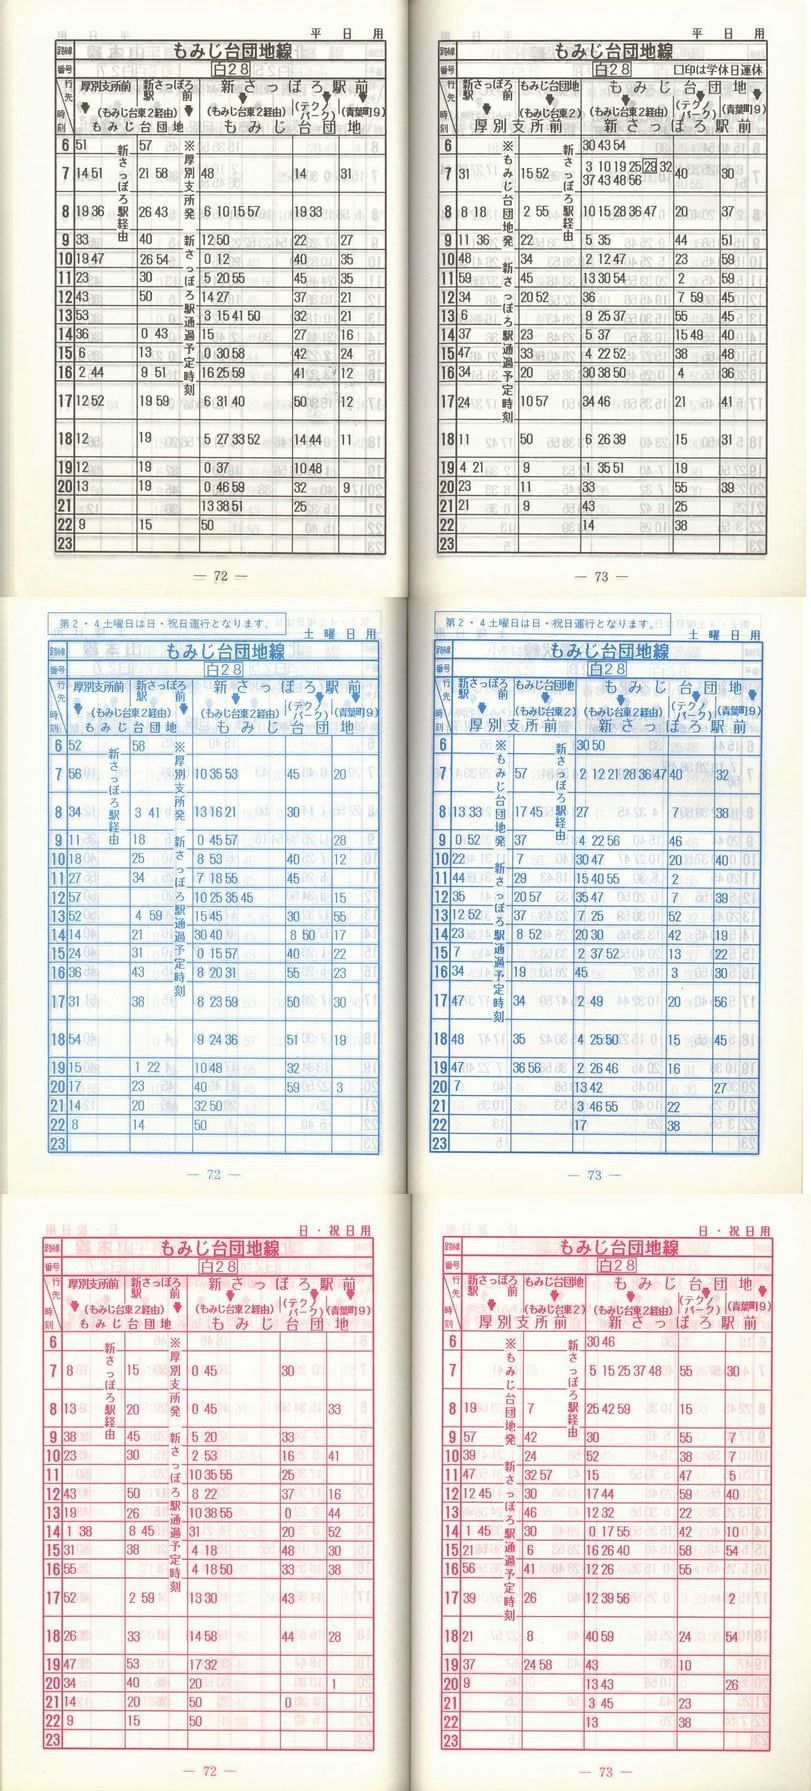 平日用
路線 もみじ台団地線
番号 白28
行先 時刻 厚別支所前 新さっぽろ駅前 新さっぽろ駅前
(もみじ台東2経由) (もみじ台東2経由) (テクノパーク) (青葉町9)
もみじ台団地 もみじ台団地
新さっぽろ駅経由
※厚別支所発 新さっぽろ駅通過予定時刻
6 51 57
7 14 51 21 58 48 14 31
8 19 36 26 43 6 10 15 57 19 33
9 33 40 12 50 22 27
10 19 47 26 54 0 12 40 35
11 23 30 5 20 55 45 35
12 43 50 14 27 37 21
13 53 3 15 41 50 32 21
14 36 0 43 15 27 16
15 6 13 0 30 58 42 24
16 2 44 9 51 16 25 59 41 12
17 12 52 19 59 6 31 40 50 12
18 12 19 5 27 33 52 14 44 11
19 12 19 0 37 10 48
20 13 19 0 46 59 32 9
21 13 38 51 25
22 9 15 50
23
— 72 —
平日用
路線 もみじ台団地線
番号 白28 □印は学休日運休
行先 時刻 新さっぽろ駅前 もみじ台団地 もみじ台団地
(もみじ台東2) (もみじ台東2経由) (テクノパーク) (青葉町9)
厚別支所前 新さっぽろ駅前
※もみじ台団地発 新さっぽろ駅通過予定時刻
新さっぽろ駅経由
6 30 43 54
7 31 15 52 3 10 19 25 28 32 40 30
37 43 48 56
8 8 18 2 55 10 15 28 36 47 20 37
9 11 36 22 5 35 44 51
10 48 34 2 12 47 23 59
11 59 45 13 30 54 2 59
12 34 20 52 36 7 59 45
13 6 9 25 37 55 45
14 37 23 5 37 15 49 40
15 47 33 4 22 52 38 48
16 34 20 30 38 50 4 36
17 24 10 57 34 46 21 41
18 11 50 6 26 39 15 31
19 4 21 9 1 35 51 19
20 23 11 33 55 39
21 21 9 43 25
22 14 38
23
— 73 —
第2・4土曜日は日・祝日運行となります。
土曜日用
路線 もみじ台団地線
番号 白28
行先 時刻 厚別支所前 新さっぽろ駅前 新さっぽろ駅前
(もみじ台東2経由) (もみじ台東2経由) (テクノパーク) (青葉町9)
もみじ台団地 もみじ台団地
新さっぽろ駅経由
※厚別支所発 新さっぽろ駅通過予定時刻
6 52 58
7 56 10 35 53 45 20
8 34 3 41 13 16 21 30
9 11 18 0 45 57 28
10 18 25 8 53 40 12
11 27 34 7 18 55 45
12 57 10 25 35 45 15
13 52 4 59 15 45 30 55
14 14 21 30 40 8 50 17
15 24 31 0 15 57 40 22
16 36 43 8 20 31 55 23
17 31 38 8 23 59 50 30
18 54 9 24 36 51 19
19 15 1 22 10 48 32
20 17 23 40 59 3
21 14 20 32 50
22 8 14 50
23
— 72 —
第2・4土曜日は日・祝日運行となります。
土曜日用
路線 もみじ台団地線
番号 白28
行先 時刻 新さっぽろ駅前 もみじ台団地 もみじ台団地
(もみじ台東2) (もみじ台東2経由) (テクノパーク) (青葉町9)
厚別支所前 新さっぽろ駅前
※もみじ台団地発 新さっぽろ駅通過予定時刻
新さっぽろ駅経由
6 30 50
7 57 2 12 21 28 36 47 40 32
8 13 33 17 45 27 7 38
9 0 52 37 4 22 56 46
10 22 7 30 47 20 40
11 44 29 15 40 55 2
12 35 20 57 35 47 7 39
13 12 52 37 7 25 52
14 23 8 52 20 30 42 19
15 7 2 37 52 13 22
16 34 19 45 3 30
17 47 34 2 49 20 56
18 48 35 4 25 50 15 45
19 47 36 56 2 26 46 16
20 7 13 42 27
21 3 46 55 22
22 17 38
23
— 73 —
日・祝日用
路線 もみじ台団地線
番号 白28
行先 時刻 厚別支所前 新さっぽろ駅前 新さっぽろ駅前
(もみじ台東2経由) (もみじ台東2経由) (テクノパーク) (青葉町9)
もみじ台団地 もみじ台団地
新さっぽろ駅経由
※厚別支所発 新さっぽろ駅通過予定時刻
6
7 8 15 0 45 30
8 13 20 0 45 33
9 38 45 5 20 33
10 23 30 2 53 16 41
11 10 35 55 25
12 43 50 8 22 37 16
13 19 26 10 38 55 0 44
14 1 38 8 45 31 20 52
15 31 38 4 18 48 30
16 55 4 18 50 33 38
17 52 2 59 13 30 43
18 26 33 14 58 44 28
19 47 53 17 32
20 34 40 20 1
21 14 20 50 0
22 9 15 50
23
— 72 —
日・祝日用
路線 もみじ台団地線
番号 白28
行先 時刻 新さっぽろ駅前 もみじ台団地 もみじ台団地
(もみじ台東2) (もみじ台東2経由) (テクノパーク) (青葉町9)
厚別支所前 新さっぽろ駅前
※もみじ台団地発 新さっぽろ駅通過予定時刻
新さっぽろ駅経由
6 30 46
7 5 15 25 37 48 55 30
8 19 7 25 42 59 15
9 57 42 30 55 7
10 39 24 52 38 7
11 47 32 57 15 47 5
12 12 45 30 17 44 59 40
13 46 12 32 22
14 1 45 30 0 17 55 42 10
15 21 6 16 26 40 58 54
16 56 41 12 26 55
17 39 26 12 39 56 2
18 21 8 40 59 24 54
19 37 24 58 43 10
20 9 13 43 26
21 3 45 23
22 13 38
23
— 73 —